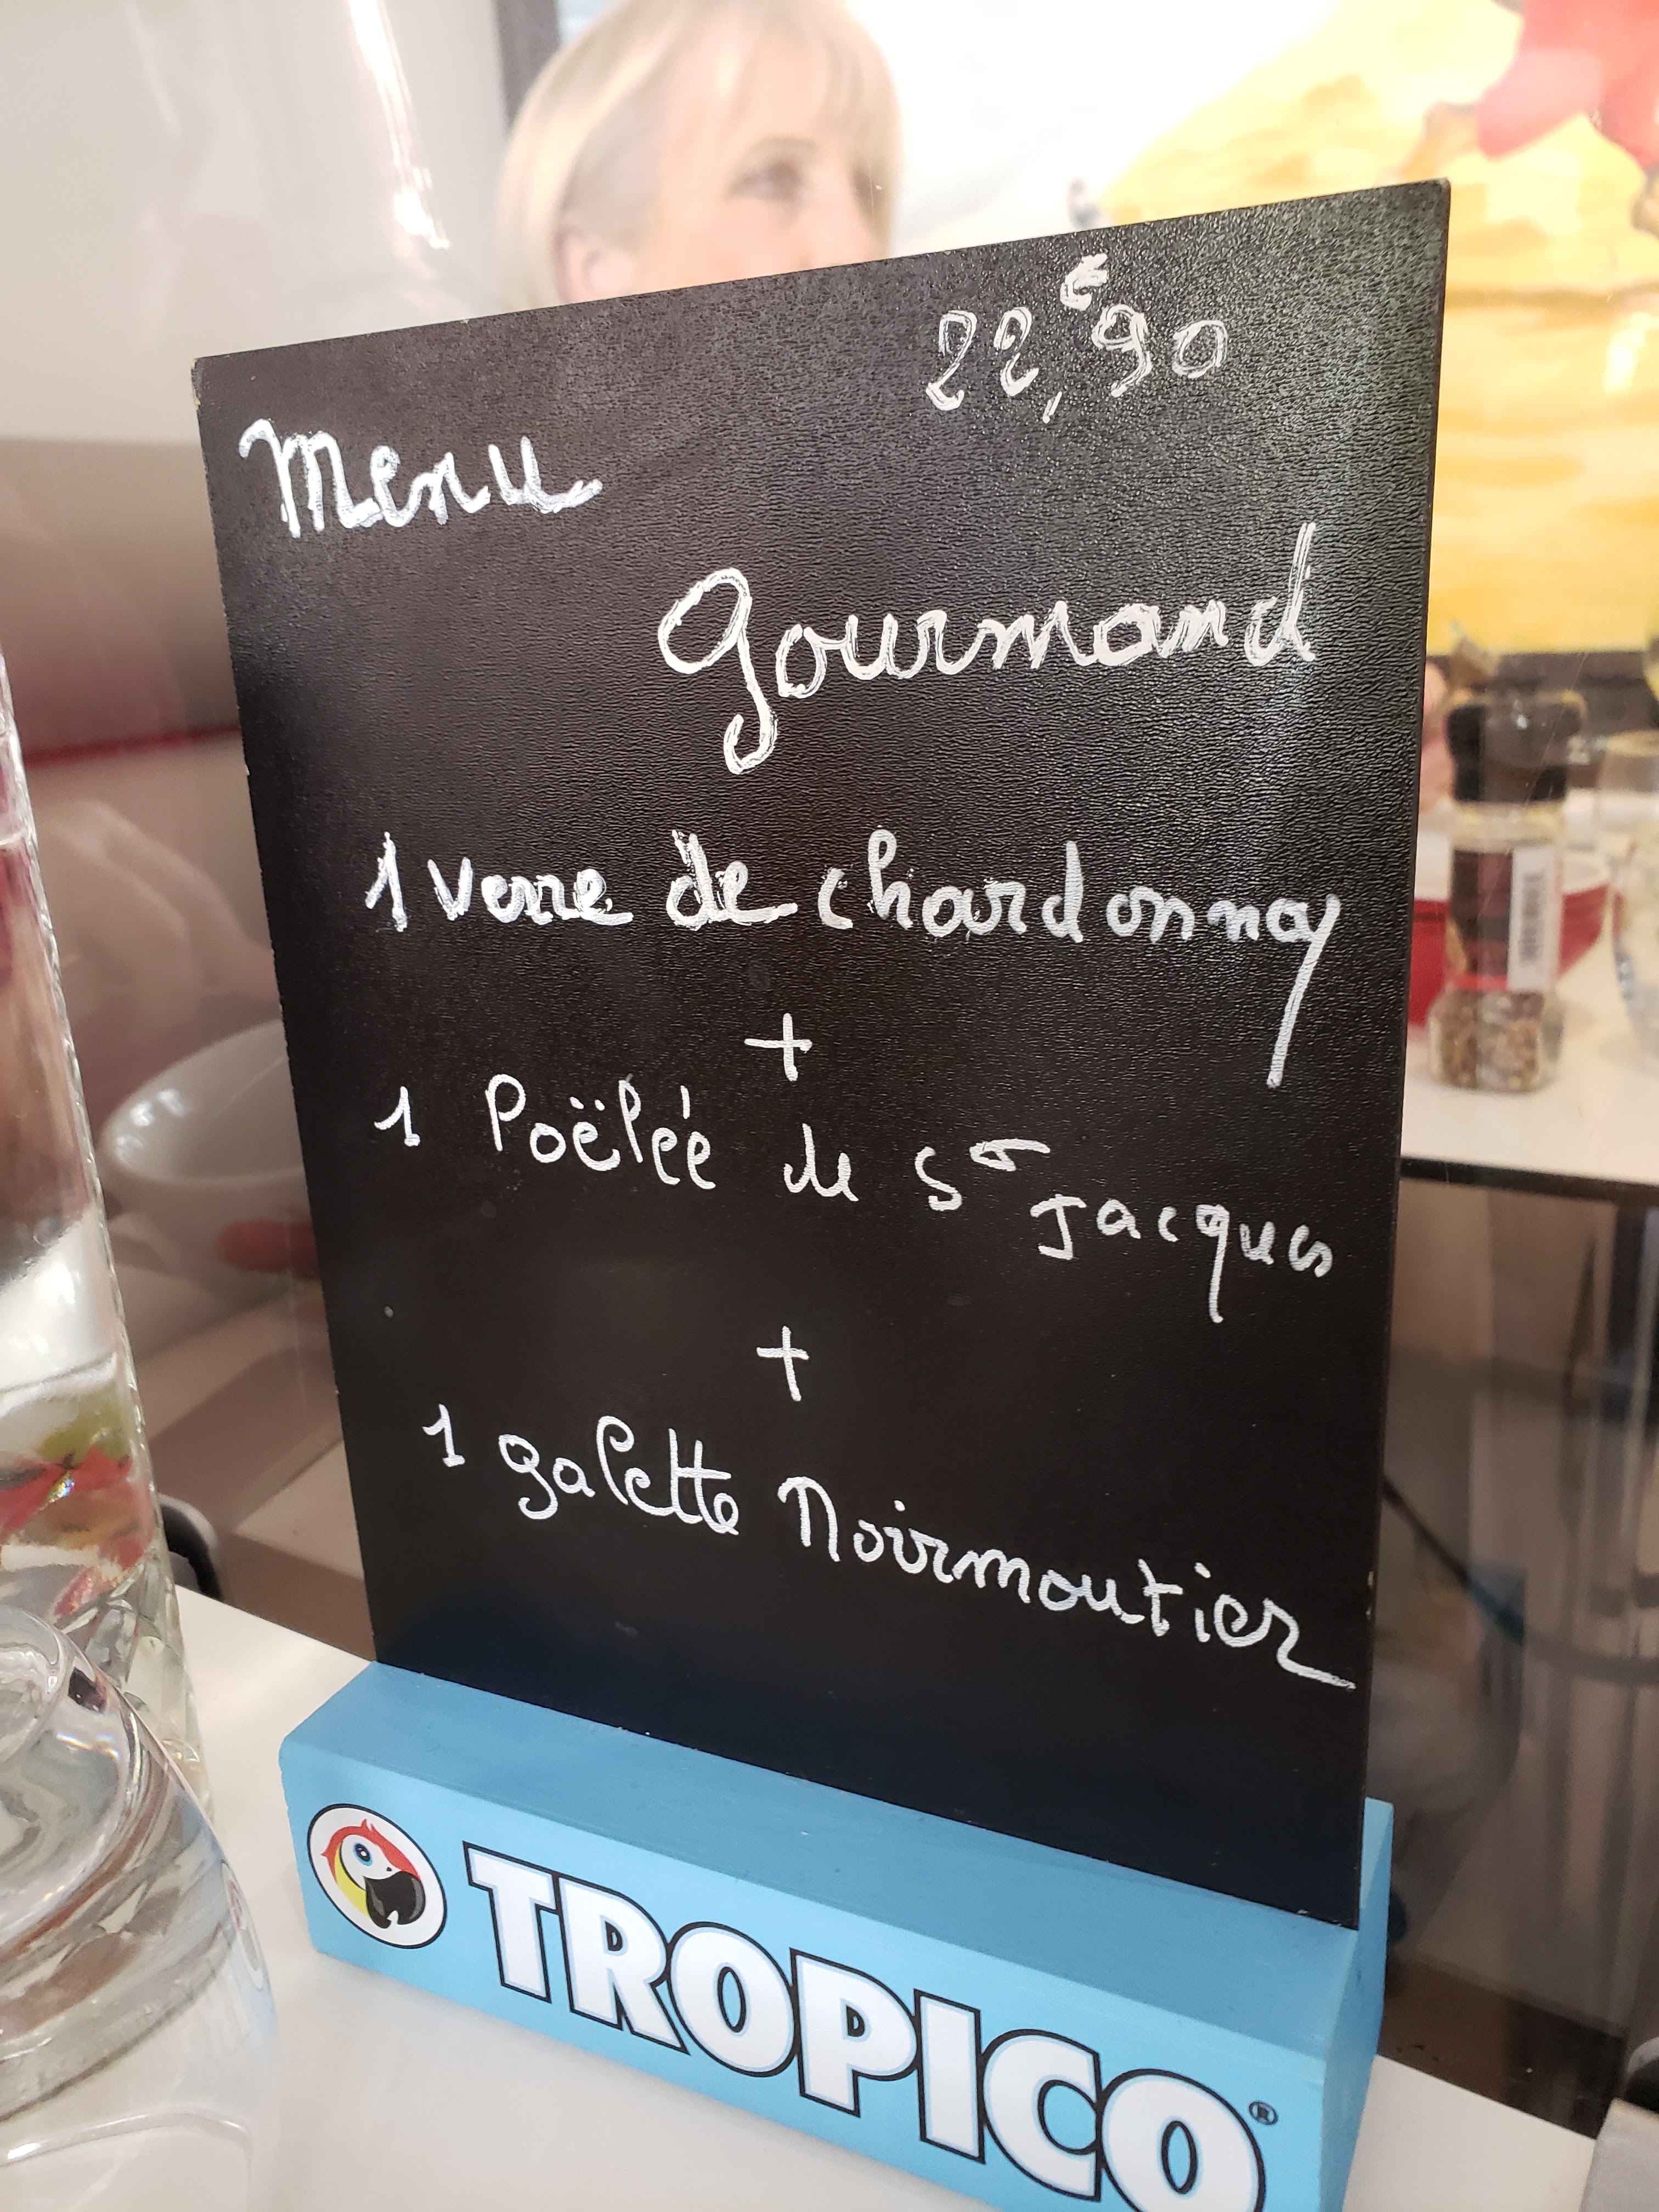 22,€90
Menu
Gourmand
1 verre de chardonnay
+
1 Poëlée de St Jacques
+
1 galette Noirmoutier
TROPICO®